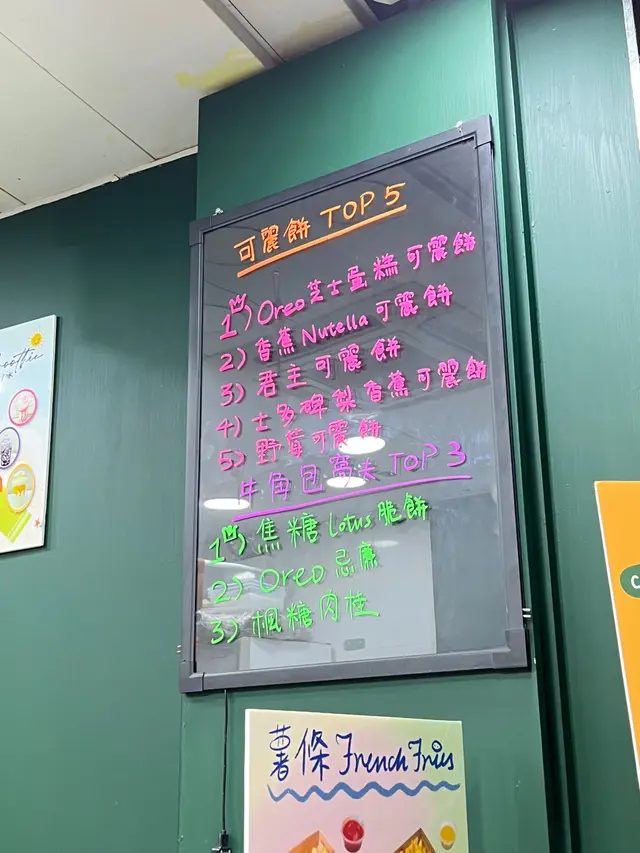 可麗餅 TOP 5
1) Oreo 芝士蛋糕可麗餅
2) 香蕉 Nutella 可麗餅
3) 君主可麗餅
4) 士多啤梨香蕉可麗餅
5) 野莓可麗餅
牛角包窩夫 TOP 3
1) 焦糖 Lotus 脆餅
2) Oreo 忌廉
3) 楓糖肉桂
薯條 French Fries